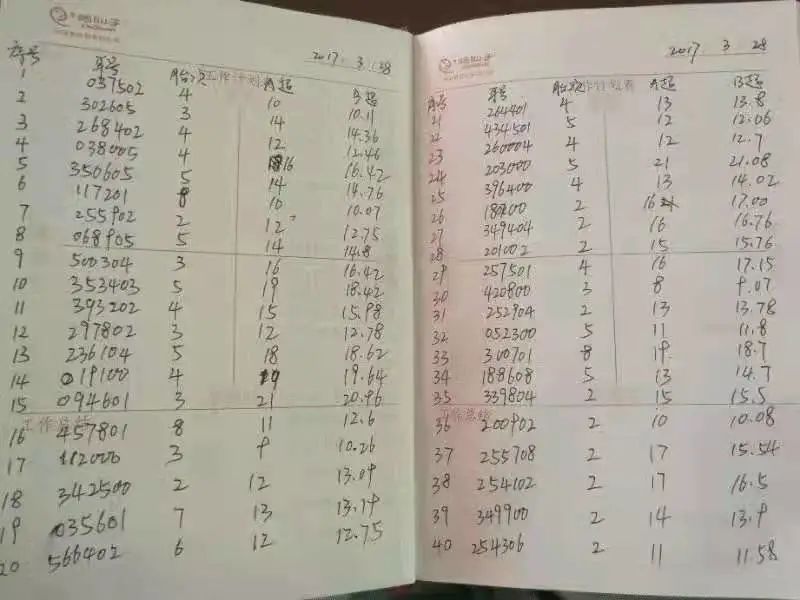 2017. 3. 38
序号 耳号 胎次 工作计划 A超 B超
1 037502 4 10 10.11
2 302605 3 14 14.36
3 268402 4 12 12.46
4 038005 4 16 16.42
5 350605 5 14 14.76
6 117201 8 10 10.07
7 255902 2 12 12.75
8 068905 5 14 14.8
9 500304 3 16 16.42
10 353403 5 19 18.42
11 393202 4 15 15.98
12 297802 3 12 12.78
13 236104 5 18 18.62
14 019100 4 19 19.64
15 094601 3 21 20.96
工作总结
16 457801 8 11 12.6
17 112000 3 9 10.26
18 342500 2 12 13.09
19 035601 7 13 13.79
20 566402 6 12 12.75
2017. 3. 28
序号 耳号 胎次 工作计划 A超 B超
21 264401 4 13 13.8
22 434501 5 12 12.06
23 260004 4 12 12.7
24 203000 5 21 21.08
25 396400 4 13 14.02
26 187200 2 16 17.00
27 349404 2 16 16.76
28 201002 2 15 15.76
29 257501 4 16 17.15
30 420800 3 8 9.07
31 252904 2 13 13.78
32 052300 5 11 11.8
33 300701 8 19 18.7
34 188608 5 13 14.7
35 339804 2 15 15.5
工作总结
36 200902 2 10 10.08
37 255708 2 17 15.54
38 254102 2 17 16.5
39 349900 2 14 13.9
40 254306 2 11 11.58